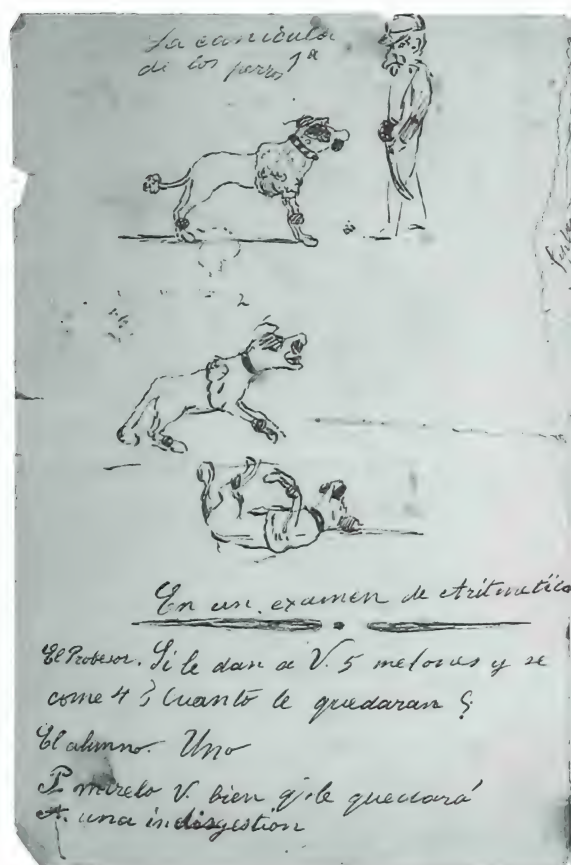 La canicula
de los perros 1ª
2
En un examen de Aritmetica
El Profesor. Si le dan a V. 5 melones y se
come 4 ¿ Cuanto le quedaran ?
El alumno. Uno
P mirelo V. bien q. le quedará
A. una indisgestion